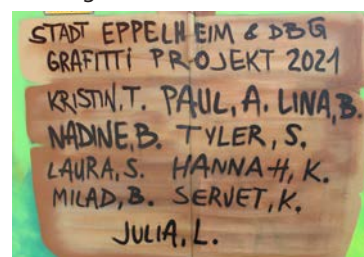 STADT EPPELHEIM & DBG
GRAFITTI PROJEKT 2021
KRISTIN, T. PAUL, A. LINA, B.
NADINE, B. TYLER, S.
LAURA, S. HANNAH, K.
MILAD, B. SERVET, K.
JULIA, L.